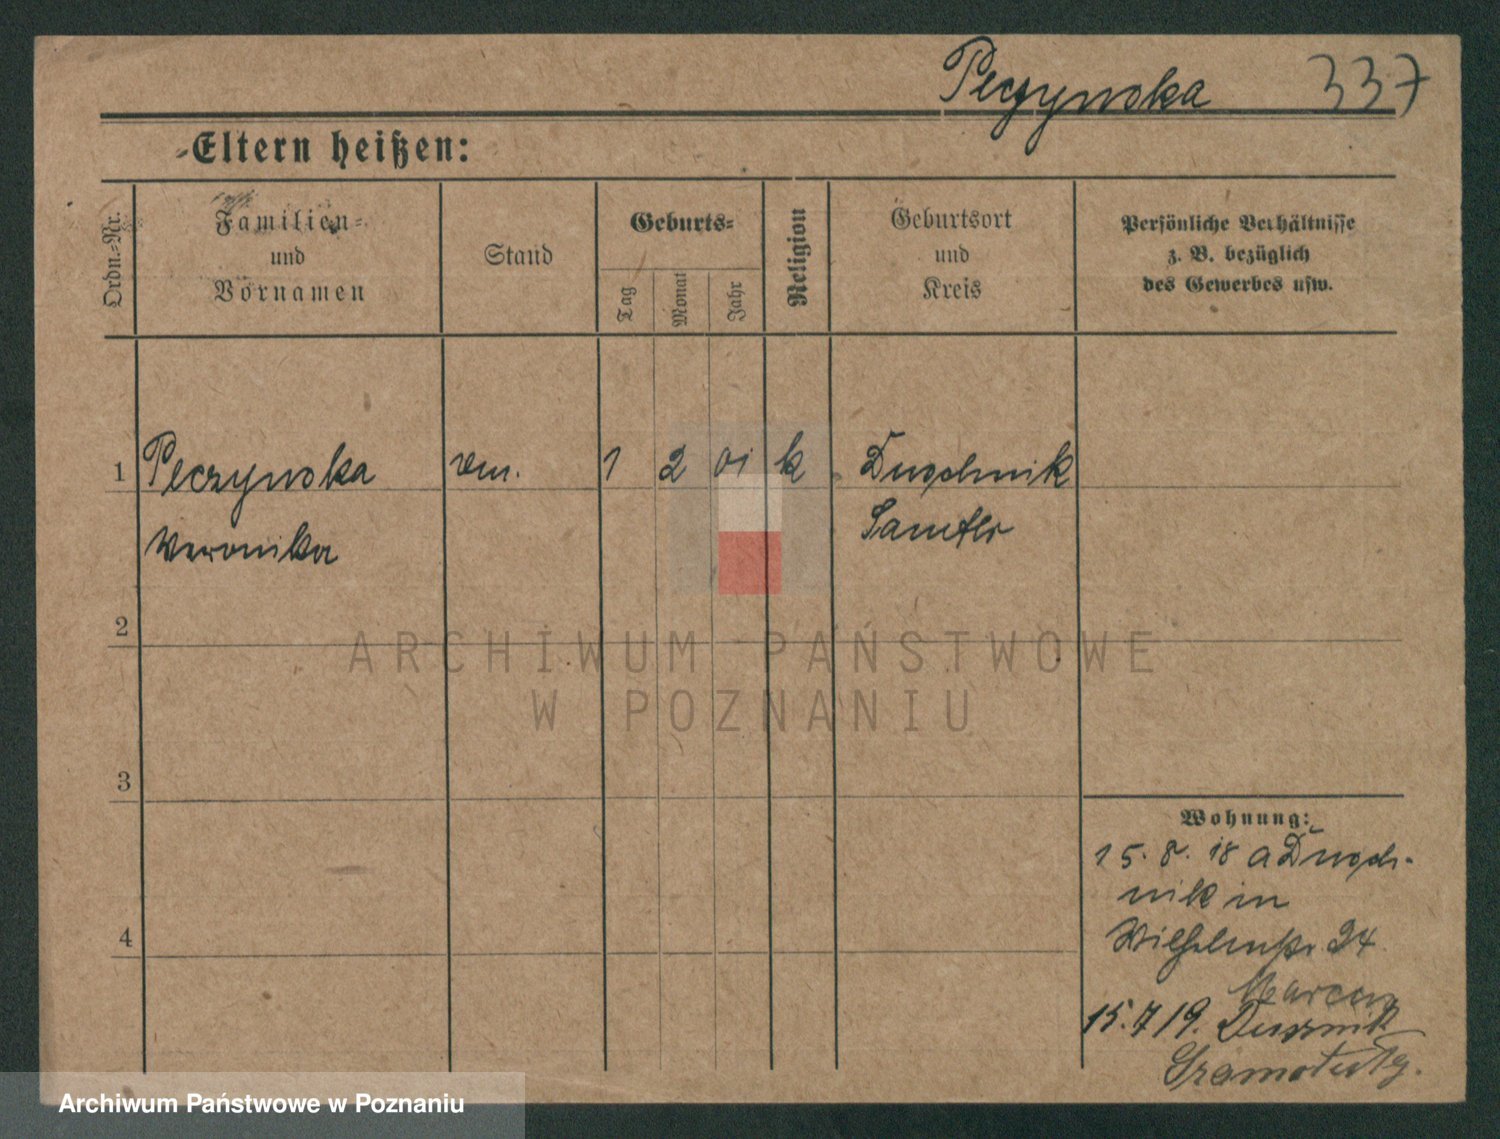 Peczynska 337
Eltern heißen:
Ordn.-Nr.
Familien-
und
Vornamen
Stand
Geburts-
Tag
Monat
Jahr
Religion
Geburtsort
und
Kreis
Persönliche Verhältnisse
z. B. bezüglich
des Gewerbes usw.
1 Peczynska 1 2 01 k Duschnik
Veronika Samter
2
3
4
Wohnung:
15. 8. 18 a Dusch-
nik in
Wilhelmstr. 24
15. 7 19. Dusznik
ARCHIWUM PAŃSTWOWE
W POZNANIU
Archiwum Państwowe w Poznaniu